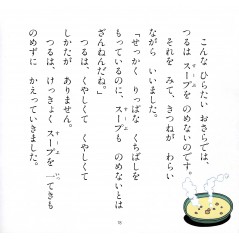 こんな ひらたい おさらでは、
つるは スープを のめないのです。
それを みて、きつねが わらい
ながら いいました。
「せっかく りっぱな くちばしを
もっているのに、スープも のめないとは
ざんねんだね。」
つるは、くやしくて くやしくて
しかたが ありません。
つるは、けっきょく スープを 一てきも
のめずに かえっていきました。